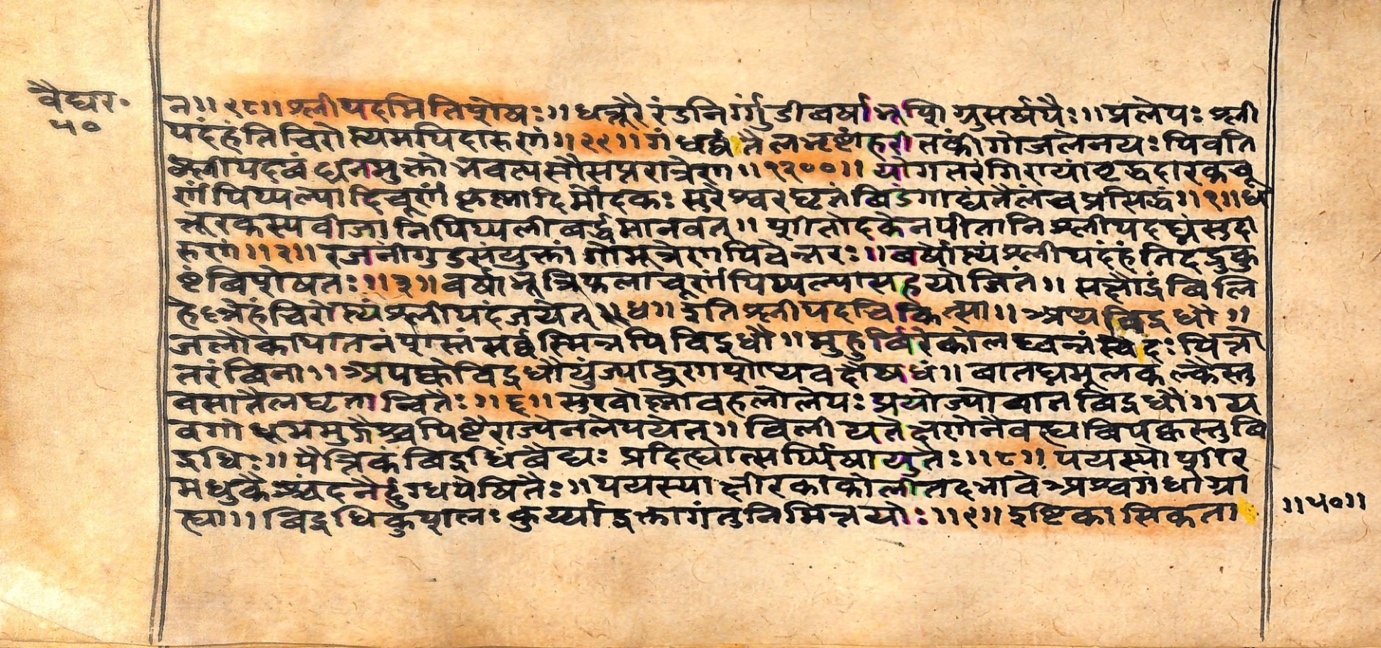 वैद्यर॰
५०
न॥ ९८॥ श्लीपदमिति शेषः॥ धत्तूरैरंडनिर्गुंडीवर्षाभूशिग्रुसर्षपैः॥ प्रलेपः श्ली
पदं हंति चिरोत्थमपि दारुणं॥ ९९॥ गंधर्वतैलभृष्टां हरीतकीं गोजलेन यः पिवति
श्लीपदवंधनमुक्तो भवत्यसौ सप्तरात्रेण॥ १२००॥ योगतरंगिण्यां वृद्धदारकचू
र्णं पिप्पल्यादिचूर्णं कृष्णादिमोदकः सुरेश्वरघृतं विडंगाद्यंतैलं च प्रसिद्धं॥ १॥ ध
त्तूरकस्य वीजानि पिप्पलीवर्द्धमानवत्॥ शीतोदकेन पीतानि श्लीपदघ्नं सुदा
रुणं॥ २॥ रजनीगुडसंयुक्तां गोमूत्रेण पिवेन्नरः॥ वर्षोत्थं श्लीपदं हंति दद्रुकु
ष्टं विशेषतः॥ ३॥ वर्षाभूत्रिफलाचूर्णं पिप्पल्यासह योजितं॥ सक्षौद्रं विलि
हेऽन्नेहं चिरोत्थं श्लीपदं जयेत्॥ ४॥ इति श्लीपदचिकित्सा॥ अथ विद्रधौ॥
जलौकापातनं शस्तं सर्वस्मिन्नपि विद्रधौ॥ मृदुर्विरेको लघ्वन्नं स्वेदः पित्तो
त्तरं विना॥ अपक्वे विद्रधौ युंज्याद्व्रणशोथवदौषधं॥ वातघ्नमूलकल्कैस्तु
वसातैलघृतान्वितैः॥ ६॥ सुखोष्णो वहलो लेपः प्रयोज्यो वातविद्रधौ॥ य
वगोधूममुद्गैश्च पिष्टैराज्येन लेपयेत्॥ विलीयते क्षणेनैवह्यविपक्वस्तु वि
द्रधिः॥ पैत्तिकं विद्रधिं वैद्यः प्रदिह्यात्सर्पिषायुतैः॥ ८॥ पयस्योशीर
मधुकैश्चंदनैर्दुग्धपेषितैः॥ पयस्या क्षीरकाकोली तदभावे अश्वगंधा ग्रा
ह्या॥ विद्रधि कुशलः कुर्य्याद्रक्तागंतुनिमित्तयोः॥ ९॥ इष्टिकासिकता
॥५०॥